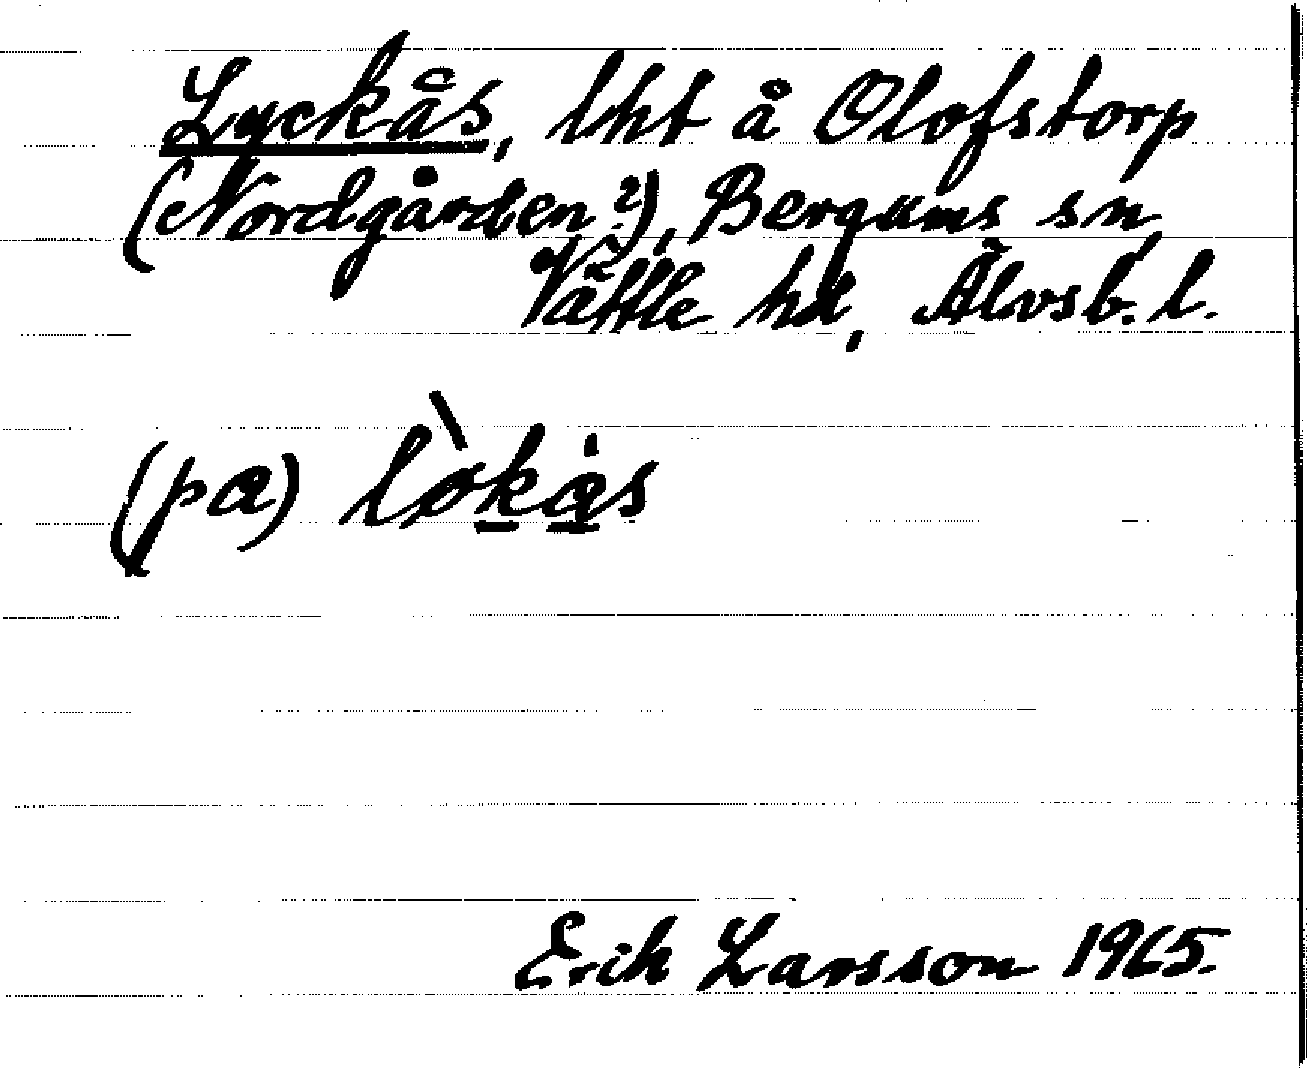 Lyckås, lht å Olofstorp
(Nordgården?), Bergums sn,
Vättle hd, Älvsb. l.
(pa) lø̀kås
Erik Larsson 1965.